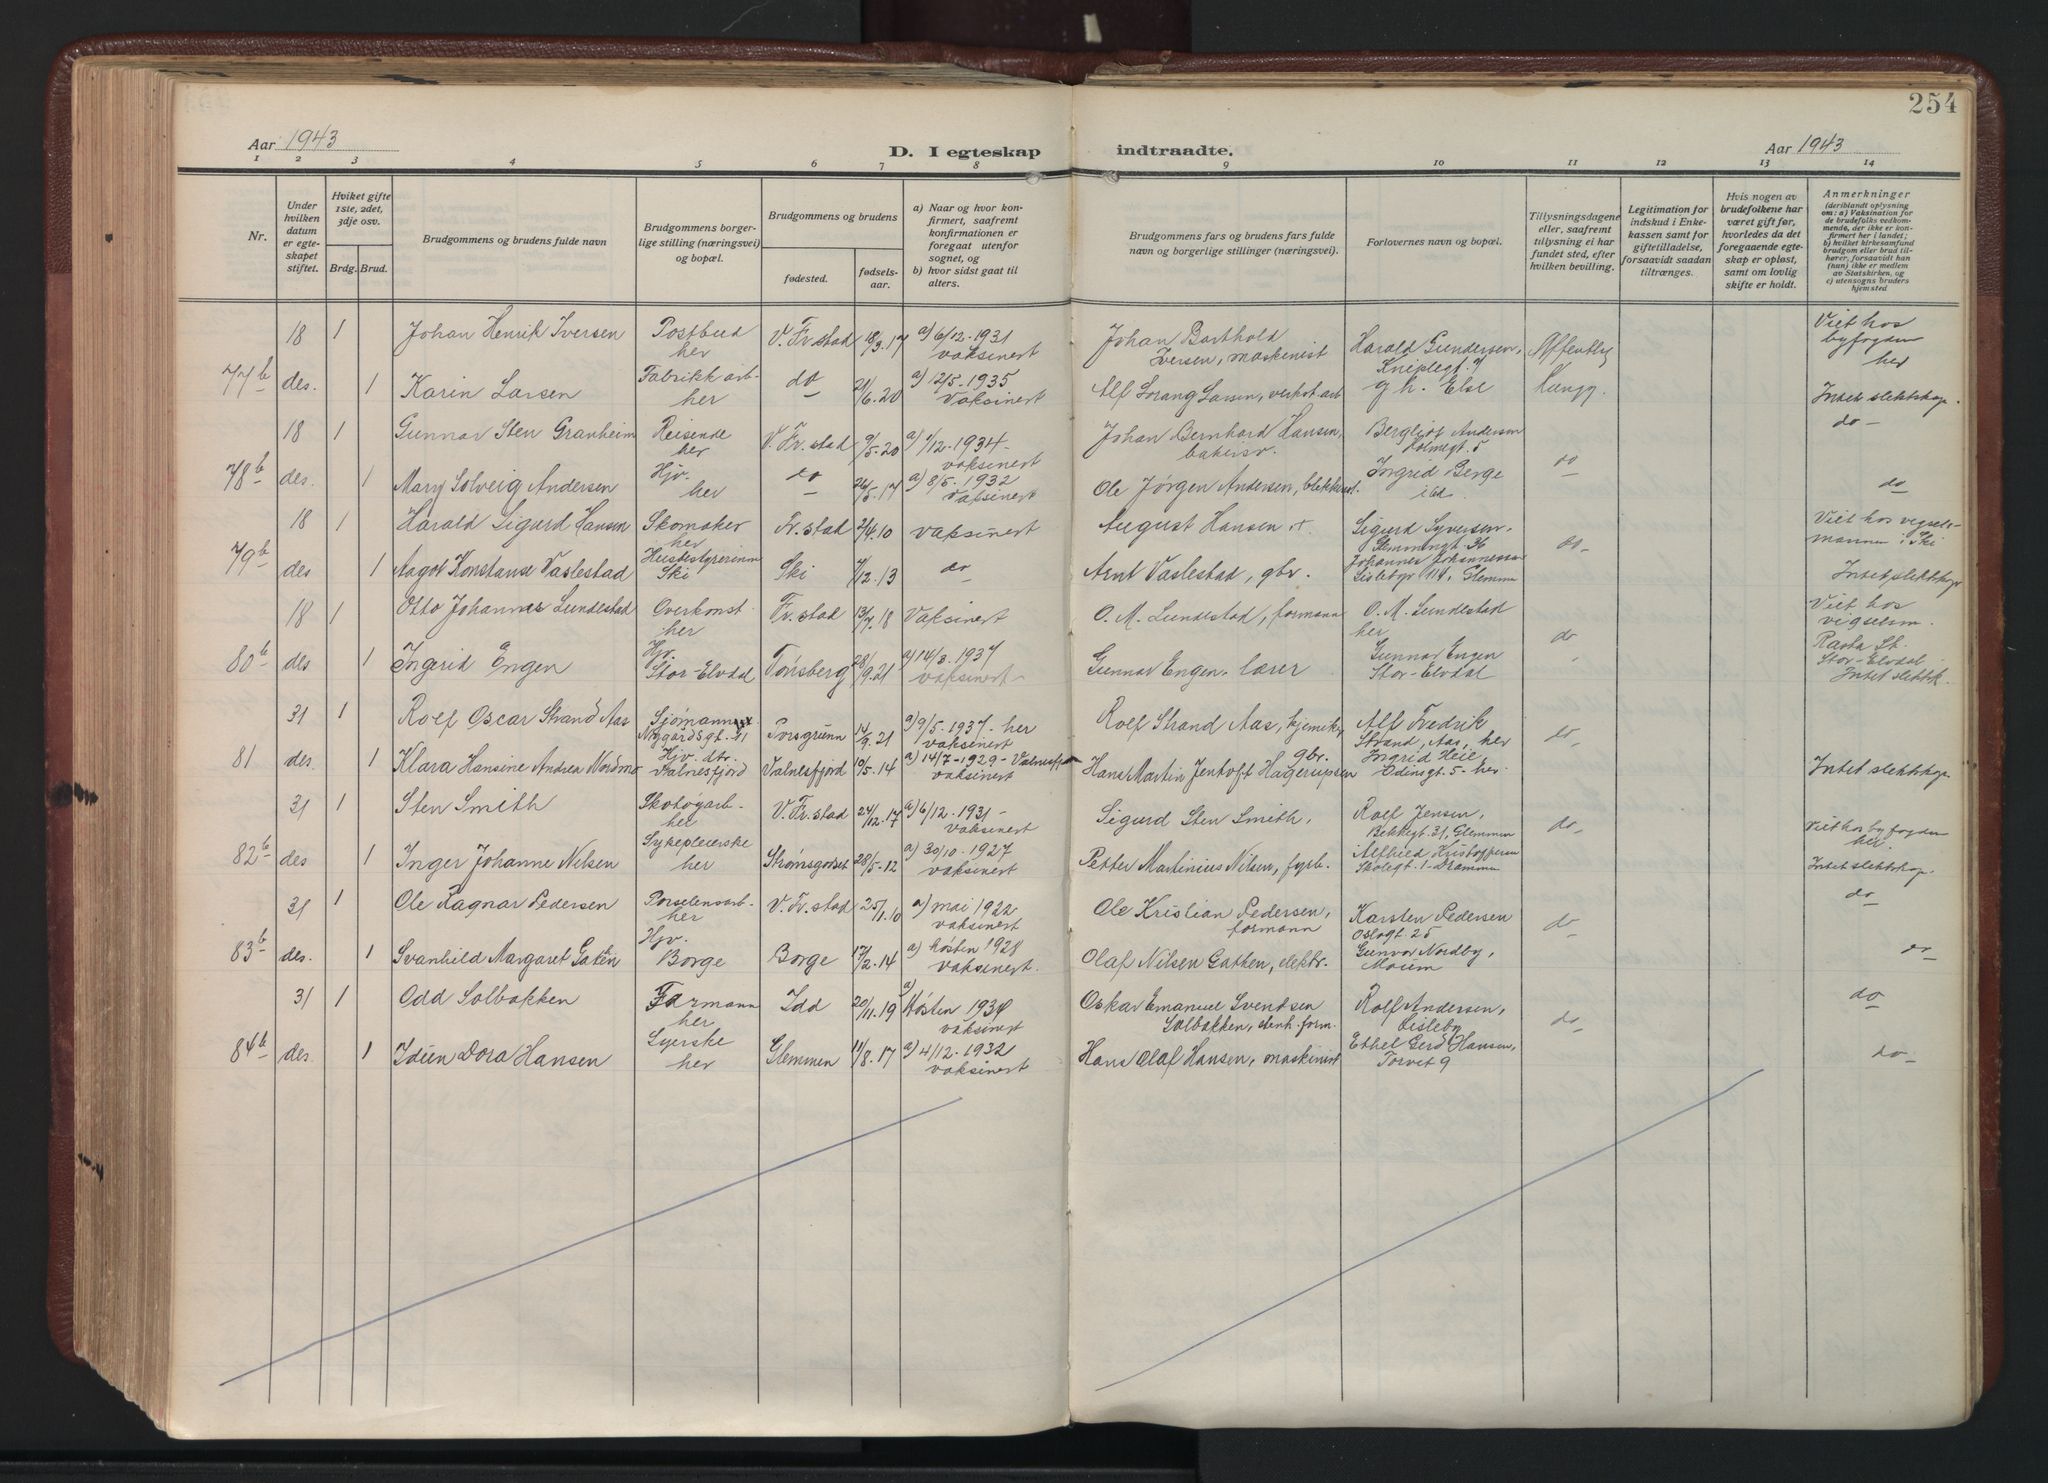 254
Aar 1943
D. I egteskap
indtraadte.
Aar 1943
1 2 3 4 5 6 7 8 9 10 11 12 13 14
Nr.
Under
hvilken
datum
er egte-
skapet
stiftet.
Hviket gifte
1ste, 2det,
3dje osv.
Brdg. Brud.
Brudgommens og brudens fulde navn
Brudgommens borger-
lige stilling (næringsvei)
og bopæl.
Brudgommens og brudens
fødested.
fødsels-
aar.
a) Naar og hvor kon-
firmert, saafremt
konfirmationen er
foregaat utenfor
sognet, og
b) hvor sidst gaat til
alters.
Brudgommens fars og brudens fars fulde
navn og borgerlige stillinger (næringsvei).
Forlovernes navn og bopæl.
Tillysningsdagene
eller, saafremt
tillysning ei har
fundet sted, efter
hvilken bevilling.
Legitimation for
indskud i Enke-
kassen samt for
giftetilladelse,
forsaavidt saadan
tiltrænges.
Hvis nogen av
brudefolkene har
været gift før,
hvorledes da det
foregaaende egte-
skap er opløst,
samt om lovlig
skifte er holdt.
Anmerkninger
(deriblandt oplysning
om: a) Vaksination for
de brudefolks vedkom-
mende, der ikke er kon-
firmert her i landet;
b) hvilket kirkesamfund
brudgom eller brud til-
hører, forsaavidt han
(hun) ikke er medlem
av Statskirken, og
c) utensogns bruders
hjemsted
77b
18 1 Johan Henrik Iversen Postbud her V. Fr.stad 18/3.17 a) 6/12-1931 vaksinert
Johan Barthold Iversen, maskinist Harald Gundersen, Kneplegt. 7 Offentlig Viet hos byfogden her
des. 1 Karin Larsen Fabrikkarb- her do 21/6.20 a) 12/5-1935 Vaksinert
Alf Sorang Larsen, verkst.arb g h. Else Intet slektskap.
78b
18 1 Gunnar Sten Granheim Reisende her V. Fr.stad 9/5.20 /12-1934- vaksinert
Johan Bernhard Hansen, bakersv. Bergliot Andersen do -
des. 1 Mary Solveig Andersen Hjv. her do 26/5.17 a) 8/5-1932 Vaksinert
Ole Jørgen Andersen, Ingrid Berge ibd. do do
79b
18 1 Harald Sigurd Hansen Skomaker her Fr.stad 2/4.10 vaksinert
August Hansen Sigurd Syversen, Glemmengt. 36 Viet hos vigsels- mannen i Ski
des 1 Aagot Konstanse Vaslestad Husbestyrerinne Ski Ski /12.13 do
Arnt Vaslestad, gbr. Johannes Johannessen Lisleby 114, Glemmen do- Intet slektskap
80b
18 1 Otto Johannes Lundestad Overkonst. her Fr.stad 13/7.18 Vaksinert
O. M. Lundestad, formann O. M. Lundestad her do Viet hos vigselsm.
des 1 Ingrid Engen Hjv. Stor-Elvdal Tønsberg 28/9.21 a) 14/3-1937 vaksinert
Gunnar Engen, lærer Gunnar Engen Stor-Elvdal Rasta St. Stor-Elvdal Intet slektsk.
81
31 1 Rolf Oscar Strand Aas Sjømann Nygårdsgt. Porsgrunn 14/9.21 a) 9/5-1937-her vaksinert
Rolf Strand Aas, kjemiker Alf Fredrik Strand, Aas, her do-
des. 1 Klara Hansine Andrea Nordmo Hjv. dtr. Valnesfjord Valnesfjord 10/5.14 a) 14/7-1929-Valnesfjord vaksinert
Hans Martin Jentoft Hagerupsen gbr. Ingrid Heie Odinsgt. 5- her Intet slektskap
82b
31 1 Sten Smith Skotøyarb- her V. Fr.stad 24/12.17 a) 6/12-1931- vaksinert
Sigurd Sten Smith, Rolf Jensen, Bekkegt. 31, Glemmen do- Viet hos byfogden her.
des 1 Inger Johanne Nilsen Sykepleierske her Strømsgodset 28/5-12 a) 30/10-1927 vaksinert
Petter Martinius Nilsen, fyrb. Alfhild Kristoffersen Skolegt. 1-Drammen Intet slektskap.
83b
31 1 Ole Ragnar Pedersen Porselensarb- her V. Fr.stad 25/1.10 a) mai 1922 vaksinert
Ole Kristian Pedersen, formann Karsten Pedersen Oslogt. 25 do do
des. 1 Svanhild Margaret Gatén Hjv. Borge Borge 17/2.14 a) høsten 1928 vaksinert.
Olaf Nilsen Gathen, elektr. Gunvor Nordby, Moum do
84b
31 1 Odd Solbakken Formann her Idd 20/11.19 a) Høsten 1934 vaksinert
Oskar Emanuel Svendsen Solbakken, form. Rolf Andersen, Lisleby do- do
des. 1 Iduen Dora Hansen Syerske her Glemmen 11/8.17 a) 4/12-1932 vaksinert
Hans Olaf Hansen, maskinist Ethel Gerd Hansen, Torvet 9 do-